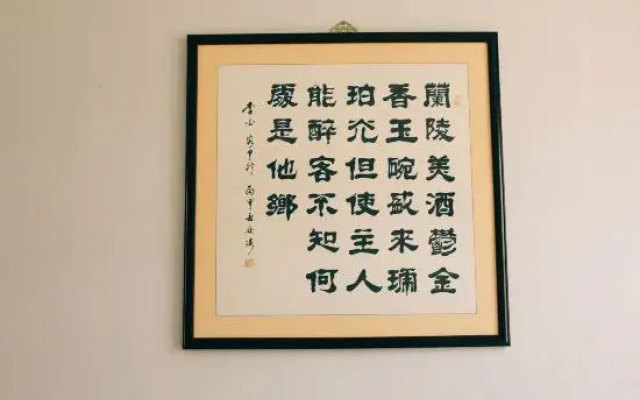 蘭陵美酒鬱金
香玉碗盛來琥
珀光但使主人
能醉客不知何
處是他鄉
李白 客中行 丙申